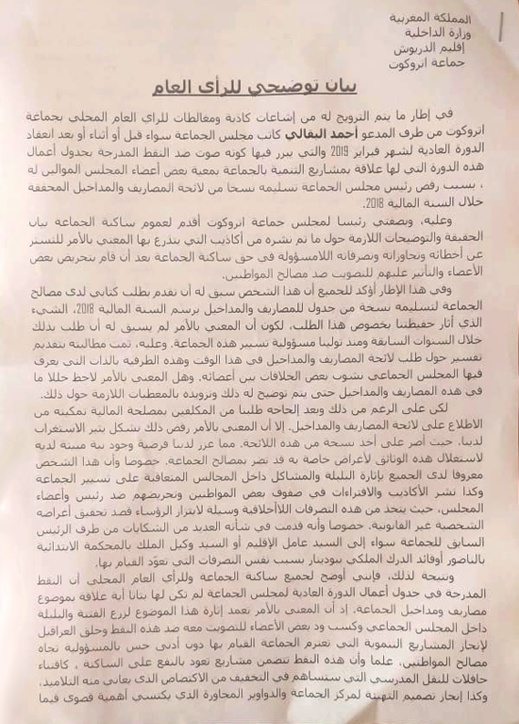 المملكة المغربية
وزارة الداخلية
إقليم الدريوش
جماعة اتروكوت
بيان توضيحي للرأي العام
في إطار ما يتم الترويج له من إشاعات كاذبة ومغالطات للراي العام المحلي بجماعة
اتروكوت من طرف المدعو أحمد البقالي كاتب مجلس الجماعة سواء قبل أو أثناء أو بعد انعقاد
الدورة العادية لشهر فبراير 2019 والتي يبرر فيها كونه صوت ضد النقط المدرجة بجدول أعمال
هذه الدورة التي لها علاقة بمشاريع التنمية بالجماعة بمعية بعض أعضاء المجلس الموالين له
، بسبب رفض رئيس مجلس الجماعة تسليمه نسخا من لائحة المصاريف والمداخيل المحققة
خلال السنة المالية 2018.
وعليه، وبصفتي رئيسا لمجلس جماعة اتروكوت أقدم لعموم ساكنة الجماعة بيان
الحقيقة والتوضيحات اللازمة حول ما تم نشره من أكاذيب التي يتذرع بها المعني بالأمر للتستر
عن أخطائه وتجاوزاته وتصرفاته اللامسؤولة في حق ساكنة الجماعة بعد أن قام بتحريض بعض
الأعضاء والتأثير عليهم للتصويت ضد مصالح المواطنين.
وفي هذا الإطار أؤكد للجميع أن هذا الشخص سبق له أن تقدم بطلب كتابي لدى مصالح
الجماعة لتسليمه نسخة من جدول للمصاريف والمداخيل برسم السنة المالية 2018، الشيء
الذي أثار حفيظتنا بخصوص هذا الطلب، لكون أن المعني بالأمر لم يسبق له أن طلب بذلك
خلال السنوات السابقة ومنذ تولينا مسؤولية تسيير هذه الجماعة. وعليه، تمت مطالبته بتقديم
تفسير حول طلب لائحة المصاريف والمداخيل في هذا الوقت وهذه الظرفية بالذات التي يعرف
فيها المجلس الجماعي نشوب بعض الخلافات بين أعضائه. وهل المعني بالأمر لاحظ خللا ما
في هذه المصاريف والمداخيل حتى يتم توضيح له ذلك وتزويده بالمعطيات اللازمة حول ذلك.
لكن على الرغم من ذلك وبعد إلحاحه طلبنا من المكلفين بمصلحة المالية تمكينه من
الاطلاع على لائحة المصاريف والمداخيل. إلا أن المعني بالأمر رفض ذلك بشكل يثير الاستغراب
لدينا، حيث أصر على أخذ نسخة من هذه اللائحة. مما عزز لدينا فرضية وجود نية مبيتة لديه
لاستغلال هذه الوثائق لأغراض خاصة به قد تضر بمصالح الجماعة. خصوصا وأن هذا الشخص
معروفا لدى الجميع بإثارة البلبلة والمشاكل داخل المجالس المتعاقبة على تسيير الجماعة
وكذا نشر الأكاذيب والافتراءات في صفوف بعض المواطنين وتحريضهم ضد رئيس وأعضاء
المجلس، حيث يتخذ من هذه التصرفات اللاأخلاقية وسيلة لابتزاز الرؤساء قصد تحقيق أغراضه
الشخصية غير القانونية. خصوصا وأنه قدمت في شأنه العديد من الشكايات من طرف الرئيس
السابق للجماعة سواء إلى السيد عامل الإقليم أو السيد وكيل الملك بالمحكمة الابتدائية
بالناضور أوقائد الدرك الملكي ببودينار بسبب نفس التصرفات التي تعوّد القيام بها.
ونتيجة لذلك، فإنني أوضح لجميع ساكنة الجماعة وللرأي العام المحلي أن النقط
المدرجة في جدول أعمال الدورة العادية لمجلس الجماعة لم تكن لها بتاتا أية علاقة بموضوع
مصاريف ومداخيل الجماعة. إذ أن المعني بالأمر تعمد إثارة هذا الموضوع لزرع الفتنة والبلبلة
داخل المجلس الجماعي وكسب ود بعض الأعضاء للتصويت معه ضد هذه النقط وخلق العراقيل
لإنجاز المشاريع التنموية التي تعتزم الجماعة القيام بها دون أدنى حس بالمسؤولية تجاه
مصالح المواطنين، علما وأن هذه النقط تتضمن مشاريع تعود بالنفع على الساكنة ، كاقتناء
حافلات للنقل المدرسي التي ستساهم في التخفيف من الاكتضاض الذي يعاني منه التلاميذ.
وكذا إنجاز تصميم التهيئة لمركز الجماعة والدواوير المجاورة الذي يكتسي أهمية قصوى فيما